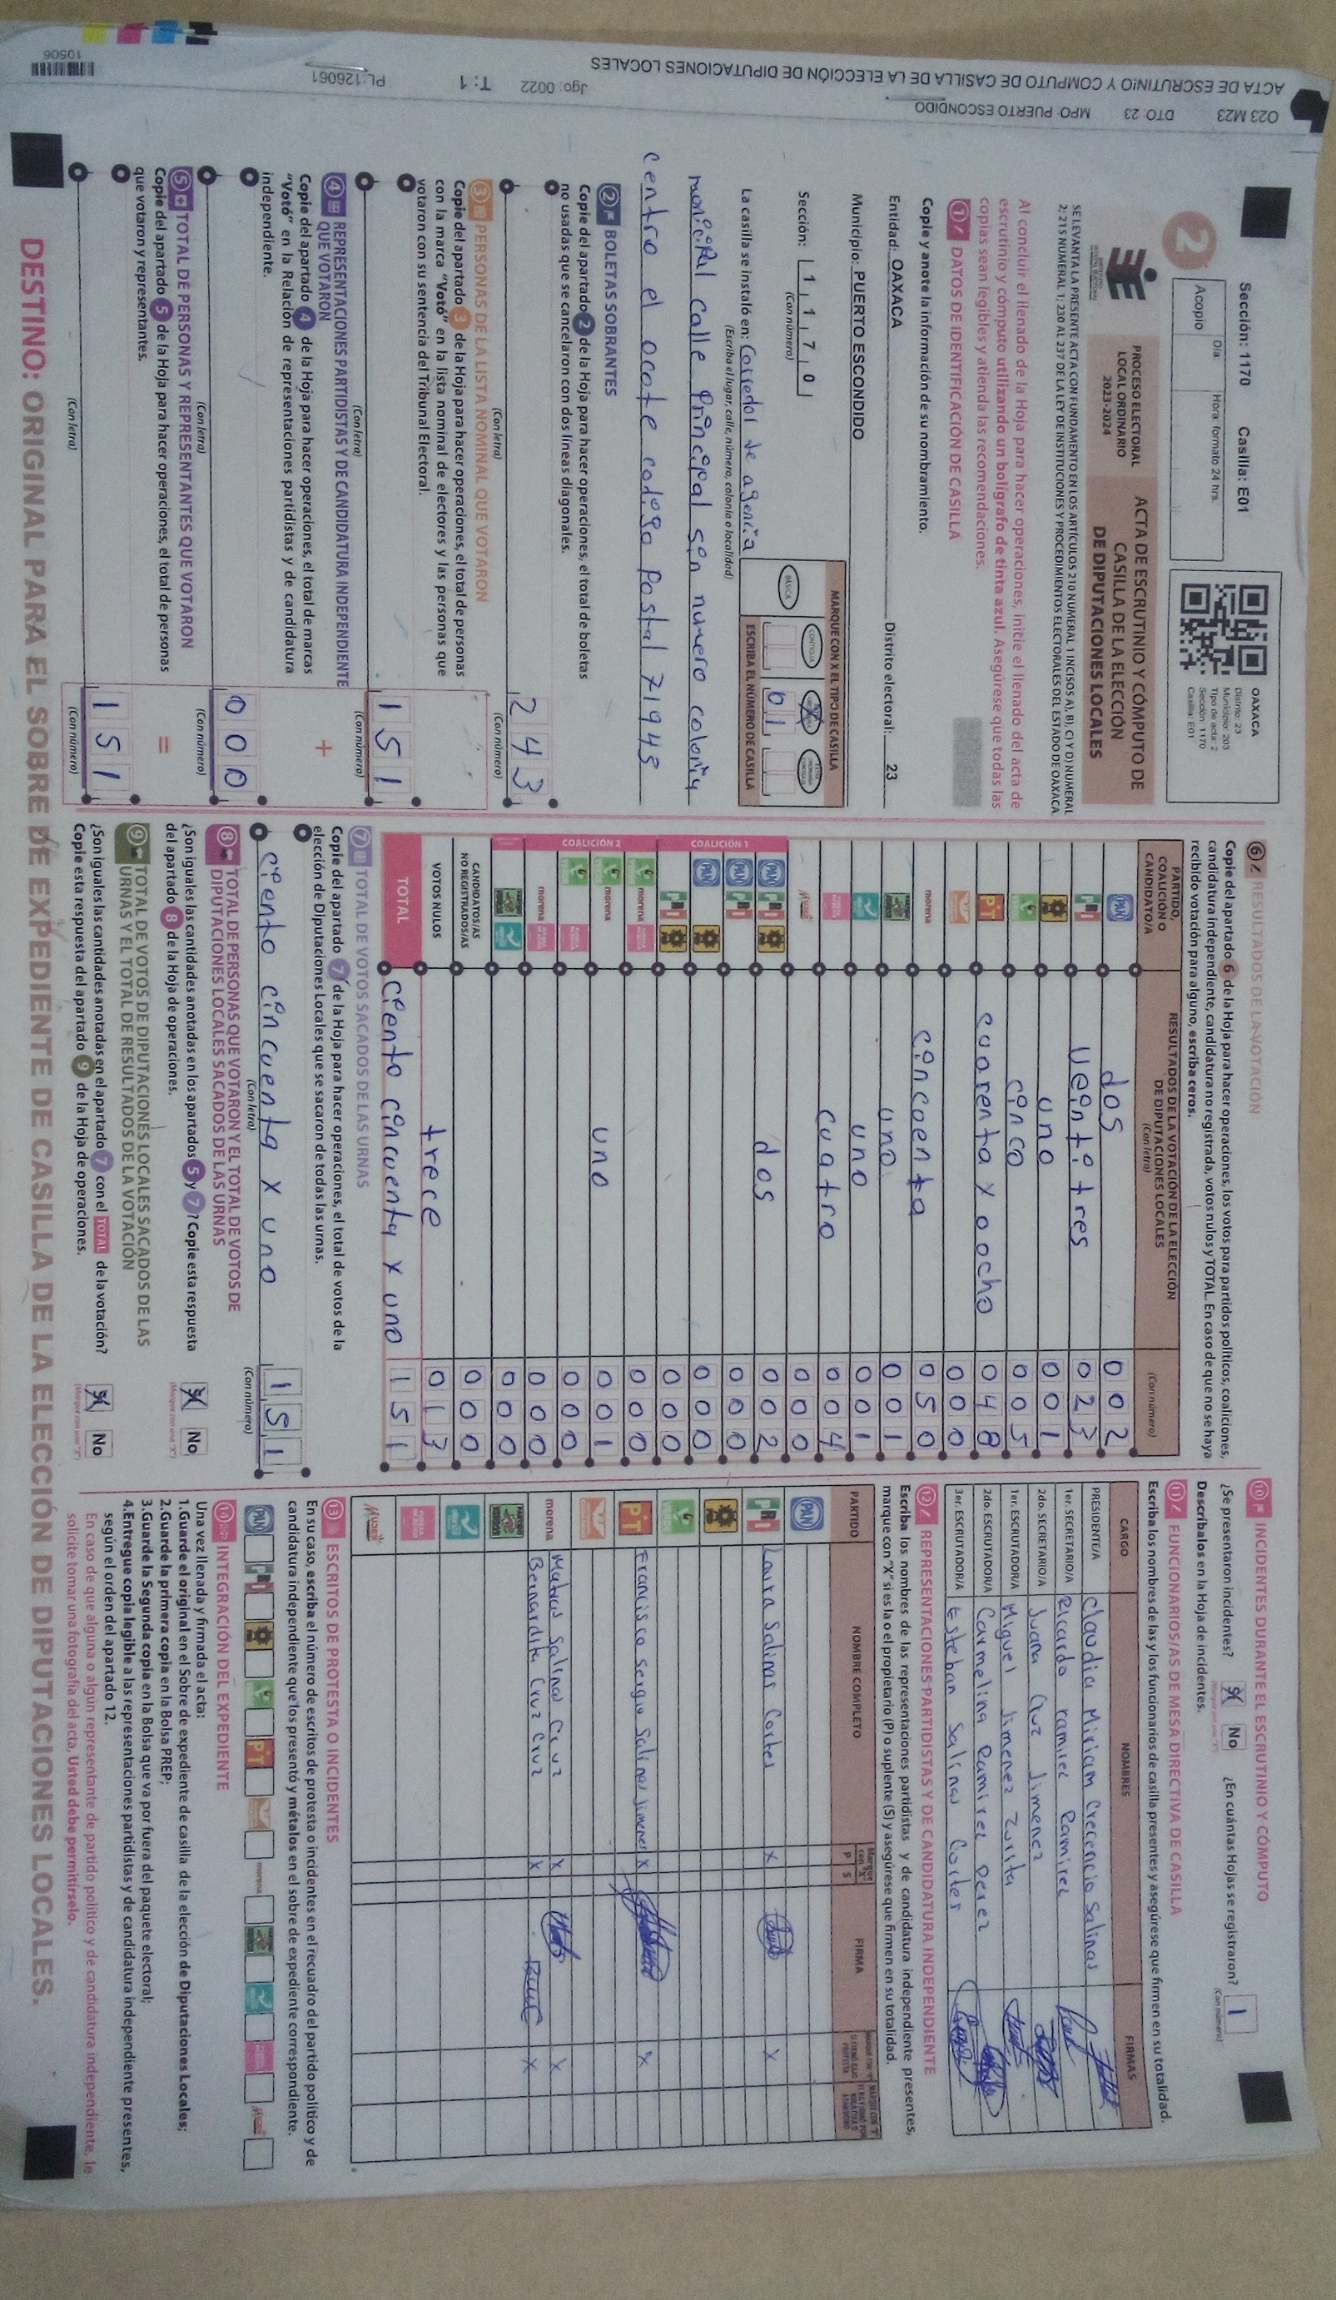 O23 M23 DTO: 23 MPO: PUERTO ESCONDIDO
ACTA DE ESCRUTINIO Y CÓMPUTO DE CASILLA DE LA ELECCIÓN DE DIPUTACIONES LOCALES
Jgo: 0022 T: 1 PL: 126061
10506
Sección: 1170 Casilla: E01
2
Día Hora: formato 24 hrs.
Acopio
OAXACA
Distrito: 23
Municipio: 203
Tipo de acta: 2
Sección: 1170
Casilla: E01
PROCESO ELECTORAL
LOCAL ORDINARIO
2023-2024
ACTA DE ESCRUTINIO Y CÓMPUTO DE
CASILLA DE LA ELECCIÓN
DE DIPUTACIONES LOCALES
SE LEVANTA LA PRESENTE ACTA CON FUNDAMENTO EN LOS ARTÍCULOS 210 NUMERAL 1 INCISOS A), B), C) Y D) NUMERAL
2; 215 NUMERAL 1; 230 AL 237 DE LA LEY DE INSTITUCIONES Y PROCEDIMIENTOS ELECTORALES DEL ESTADO DE OAXACA
Al concluir el llenado de la Hoja para hacer operaciones, inicie el llenado del acta de
escrutinio y cómputo utilizando un bolígrafo de tinta azul. Asegúrese que todas las
copias sean legibles y atienda las recomendaciones.
1 DATOS DE IDENTIFICACIÓN DE CASILLA
Copie y anote la información de su nombramiento.
Entidad: OAXACA Distrito electoral: 23
Municipio: PUERTO ESCONDIDO
Sección: 1 1 7 0
(Con número)
MARQUE CON X EL TIPO DE CASILLA
BÁSICA
ESCRIBA EL NÚMERO DE CASILLA
01
La casilla se instaló en: Corredor de agencia
(Escriba el lugar, calle, número, colonia o localidad)
municipal calle principal sin numero colonia
centro el ocote codigo postal 71948
2 BOLETAS SOBRANTES
Copie del apartado 2 de la Hoja para hacer operaciones, el total de boletas
no usadas que se cancelaron con dos líneas diagonales.
243
(Con letra) (Con número)
3 PERSONAS DE LA LISTA NOMINAL QUE VOTARON
Copie del apartado 3 de la Hoja para hacer operaciones, el total de personas
con la marca "Votó" en la lista nominal de electores y las personas que
votaron con su sentencia del Tribunal Electoral.
151
(Con letra) (Con número)
4 REPRESENTACIONES PARTIDISTAS Y DE CANDIDATURA INDEPENDIENTE
QUE VOTARON
+
Copie del apartado 4 de la Hoja para hacer operaciones, el total de marcas
"Votó" en la Relación de representaciones partidistas y de candidatura
independiente.
000
(Con letra) (Con número)
5 TOTAL DE PERSONAS Y REPRESENTANTES QUE VOTARON
Copie del apartado 5 de la Hoja para hacer operaciones, el total de personas
que votaron y representantes.
=
151
(Con letra) (Con número)
6 RESULTADOS DE LA VOTACIÓN
Copie del apartado 6 de la Hoja para hacer operaciones, los votos para partidos políticos, coaliciones,
candidatura independiente, candidatura no registrada, votos nulos y TOTAL. En caso de que no se haya
recibido votación para alguno, escriba ceros.
PARTIDO,
COALICIÓN O
CANDIDATO/A
RESULTADOS DE LA VOTACIÓN DE LA ELECCIÓN
DE DIPUTACIONES LOCALES
(Con letra) (Con número)
PAN dos 002
PRI Veinti tres 023
uno 001
cinco 005
PT cuarenta y ocho 048
000
morena cincuenta 050
uno 001
uno 001
cuatro 004
000
COALICIÓN 1
PAN PRI dos 002
PAN PRI 000
PAN 000
PRI 000
COALICIÓN 2
morena 000
morena uno 001
000
morena 000
000
CANDIDATOS/AS
NO REGISTRADOS/AS 000
VOTOS NULOS trece 013
TOTAL ciento cincuenta y uno 151
7 TOTAL DE VOTOS SACADOS DE LAS URNAS
Copie del apartado 7 de la Hoja para hacer operaciones, el total de votos de la
elección de Diputaciones Locales que se sacaron de todas las urnas.
ciento cincuenta y uno 151
(Con letra) (Con número)
8 TOTAL DE PERSONAS QUE VOTARON Y EL TOTAL DE VOTOS DE
DIPUTACIONES LOCALES SACADOS DE LAS URNAS
¿Son iguales las cantidades anotadas en los apartados 5 y 7? Copie esta respuesta
del apartado 8 de la Hoja de operaciones.
Sí No
9 TOTAL DE VOTOS DE DIPUTACIONES LOCALES SACADOS DE LAS
URNAS Y EL TOTAL DE RESULTADOS DE LA VOTACIÓN
¿Son iguales las cantidades anotadas en el apartado 7 con el TOTAL de la votación?
Copie esta respuesta del apartado 9 de la Hoja de operaciones.
Sí No
10 INCIDENTES DURANTE EL ESCRUTINIO Y CÓMPUTO
¿Se presentaron incidentes? Sí No ¿En cuántas Hojas se registraron? 1
(Con número)
Descríbalos en la Hoja de incidentes.
11 FUNCIONARIOS/AS DE MESA DIRECTIVA DE CASILLA
Escriba los nombres de las y los funcionarios de casilla presentes y asegúrese que firmen en su totalidad.
CARGO NOMBRES FIRMAS
PRESIDENTE/A Claudia Miriam Crecencio Salinas
1er. SECRETARIO/A Ricardo ramirez Ramirez
2do. SECRETARIO/A Juana Cruz Jimenez
1er. ESCRUTADOR/A Miguel Jimenez Zurita
2do. ESCRUTADOR/A Carmelina Ramirez Perez
3er. ESCRUTADOR/A Esteban Salinas Cortes
12 REPRESENTACIONES PARTIDISTAS Y DE CANDIDATURA INDEPENDIENTE
Escriba los nombres de las representaciones partidistas y de candidatura independiente presentes,
marque con "X" si es la o el propietario (P) o suplente (S) y asegúrese que firmen en su totalidad.
PARTIDO NOMBRE COMPLETO P S FIRMA
PAN
PRI Laura Salinas Cortes X X
PT Francisco Sergio Salinas Jimenez X X
morena Mateos Salinas Cruz X X
Bernardita Cruz Cruz X X
13 ESCRITOS DE PROTESTA O INCIDENTES
En su caso, escriba el número de escritos de protesta o incidentes en el recuadro del partido político y de
candidatura independiente que los presentó y métalos en el sobre de expediente correspondiente.
PAN PRI PT morena
14 INTEGRACIÓN DEL EXPEDIENTE
Una vez llenada y firmada el acta:
1.Guarde el original en el Sobre de expediente de casilla de la elección de Diputaciones Locales;
2.Guarde la primera copia en la Bolsa PREP;
3.Guarde la Segunda copia en la Bolsa que va por fuera del paquete electoral;
4.Entregue copia legible a las representaciones partidistas y de candidatura independiente presentes,
según el orden del apartado 12.
En caso de que alguna o algún representante de partido político y de candidatura independiente, le
solicite tomar una fotografía del acta, Usted debe permitírselo.
DESTINO: ORIGINAL PARA EL SOBRE DE EXPEDIENTE DE CASILLA DE LA ELECCIÓN DE DIPUTACIONES LOCALES.